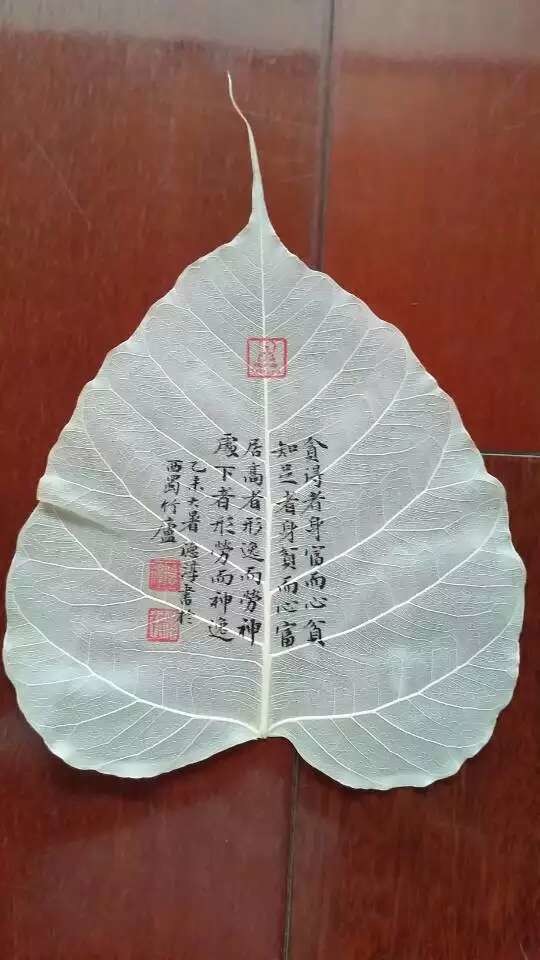 貪得者身富而心貧
知足者身貧而心富
居高者形逸而勞神
處下者形勞而神逸
乙未大暑德淳書於
西蜀竹廬